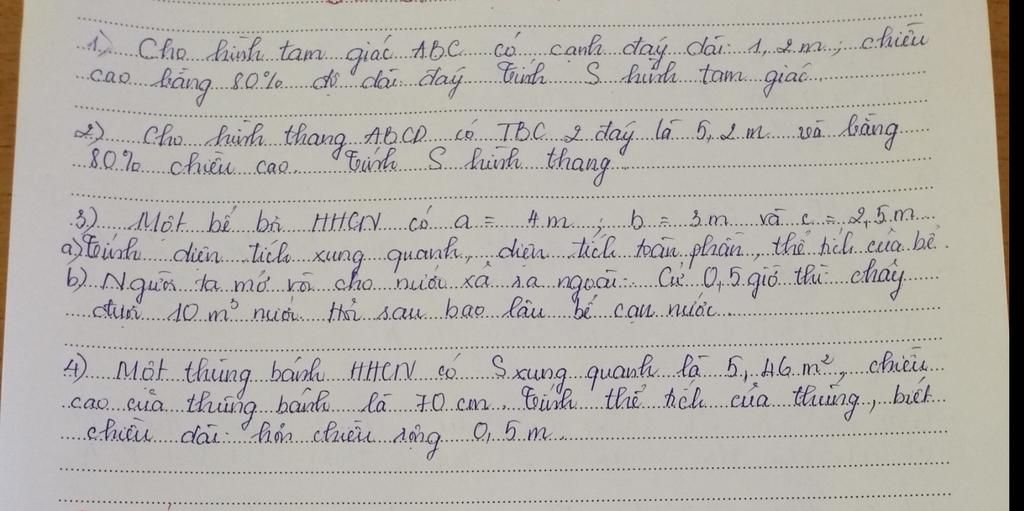 1.) Cho hình tam giác ABC có cạnh đáy dài 1,2 m; chiều
cao bằng 80% độ dài đáy Tính S hình tam giác.
2) Cho hình thang ABCD có TBC 2 đáy là 5,2 m và bằng
80% chiều cao. Tính S hình thang
3.) Một bể bơi HHCN có a = 4m; b = 3m và c = 2,5m
a) Tính diện tích xung quanh, diện tích toàn phần, thể tích của bể.
b) Người ta mở vòi cho nước xả ra ngoài. Cứ 0,5 giờ thì chảy
được 10 m³ nước. Hỏi sau bao lâu bể cạn nước.
4) Một thùng bánh HHCN có S xung quanh là 5,46 m², chiều
cao của thùng bánh là 70 cm. Tính thể tích của thùng, biết
chiều dài hơn chiều rộng 0,5 m.